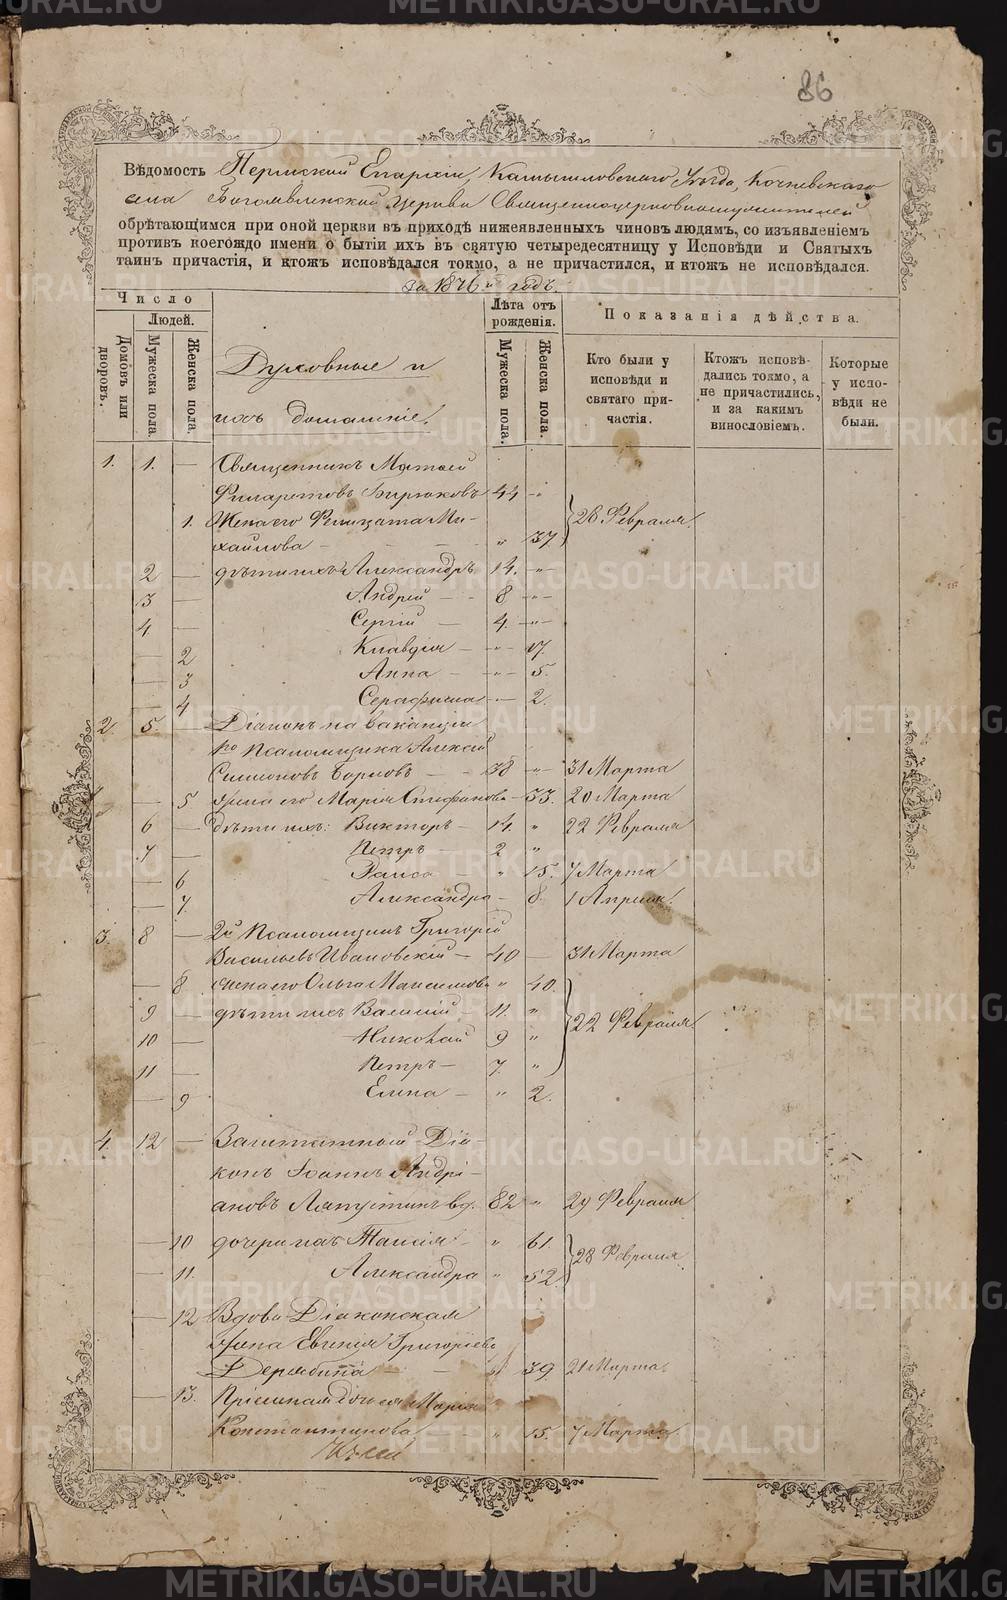 86
Вѣдомость Пермской Епархіи, Камышловскаго Уѣзда, Кочневскаго
села Богоявленской Церкви Священноцерковнослужителей
обрѣтающимся при оной церкви въ приходѣ нижеявленныхъ чиновъ людямъ, со изъявленіемъ
противъ коегождо имени о бытіи ихъ въ святую четыредесятницу у Исповѣди и Святыхъ
таинъ причастія, и ктожъ исповѣдался токмо, а не причастился, и ктожъ не исповѣдался.
за 1876й годъ.
Число
Людей.
Домовъ или дворовъ.
Мужеска пола.
Женска пола.
Духовные и
ихъ домашніе.
Лѣта отъ рожденія.
Мужеска пола.
Женска пола.
Показанія дѣйства.
Кто были у исповѣди и святаго причастія.
Ктожъ исповѣдались токмо, а не причастились, и за какимъ винословіемъ.
Которые у исповѣди не были.
1. 1. — Священникъ Матѳей
Филаретовъ Бирюковъ 44 „
28 Февраля.
1. Жена его Фелицата Ми-
хайлова — „ 37.
2 — дѣти ихъ: Александръ 14. „
3 — Андрей — 8 „
4 — Сергій — 4. „
— 2 Клавдія — „ 17.
— 3 Анна — „ 5.
— 4 Серафима „ 2.
2. 5. — Діаконъ на вакансіи
Псаломщика Алексѣй
Симеоновъ — 38 „ 31 Марта
— 5 Жена его Марія Стефанова — 33. 20 Марта
6 — дѣти ихъ: Викторъ — 14. „ 22 Февраля
7 — Петръ — 2 „
— 6 Раиса „ 15. 7 Марта
— 7. Александра — 8. 1 Апрѣля.
3. 8 — 2й Псаломщикъ Григорій
Васильевъ Ивановскій — 40 — 31 Марта
8 жена его Ольга Максимова „ 40.
9 — дѣти ихъ Василій — 11. „
22 Февраля.
10 — Николай 9 „
11 — Петръ — 7. „
— 9 Елена — „ 2.
4. 12 — Заштатный Діа-
конъ Іоаннъ Андрі-
ановъ Ляпустинъ вд. 82 „ 29 Февраля
— 10 дочери его Таисія — „ 61.
28 Февраля
— 11. Александра „ 52.
12 Вдова Діаконская
жена Евгенія Григоріева
Дерябина — 39 21 Марта.
— 13. Пріемная дочь ея Марія
Константинова — „ 15. 7 Марта.
METRIKI.GASO-URAL.RU